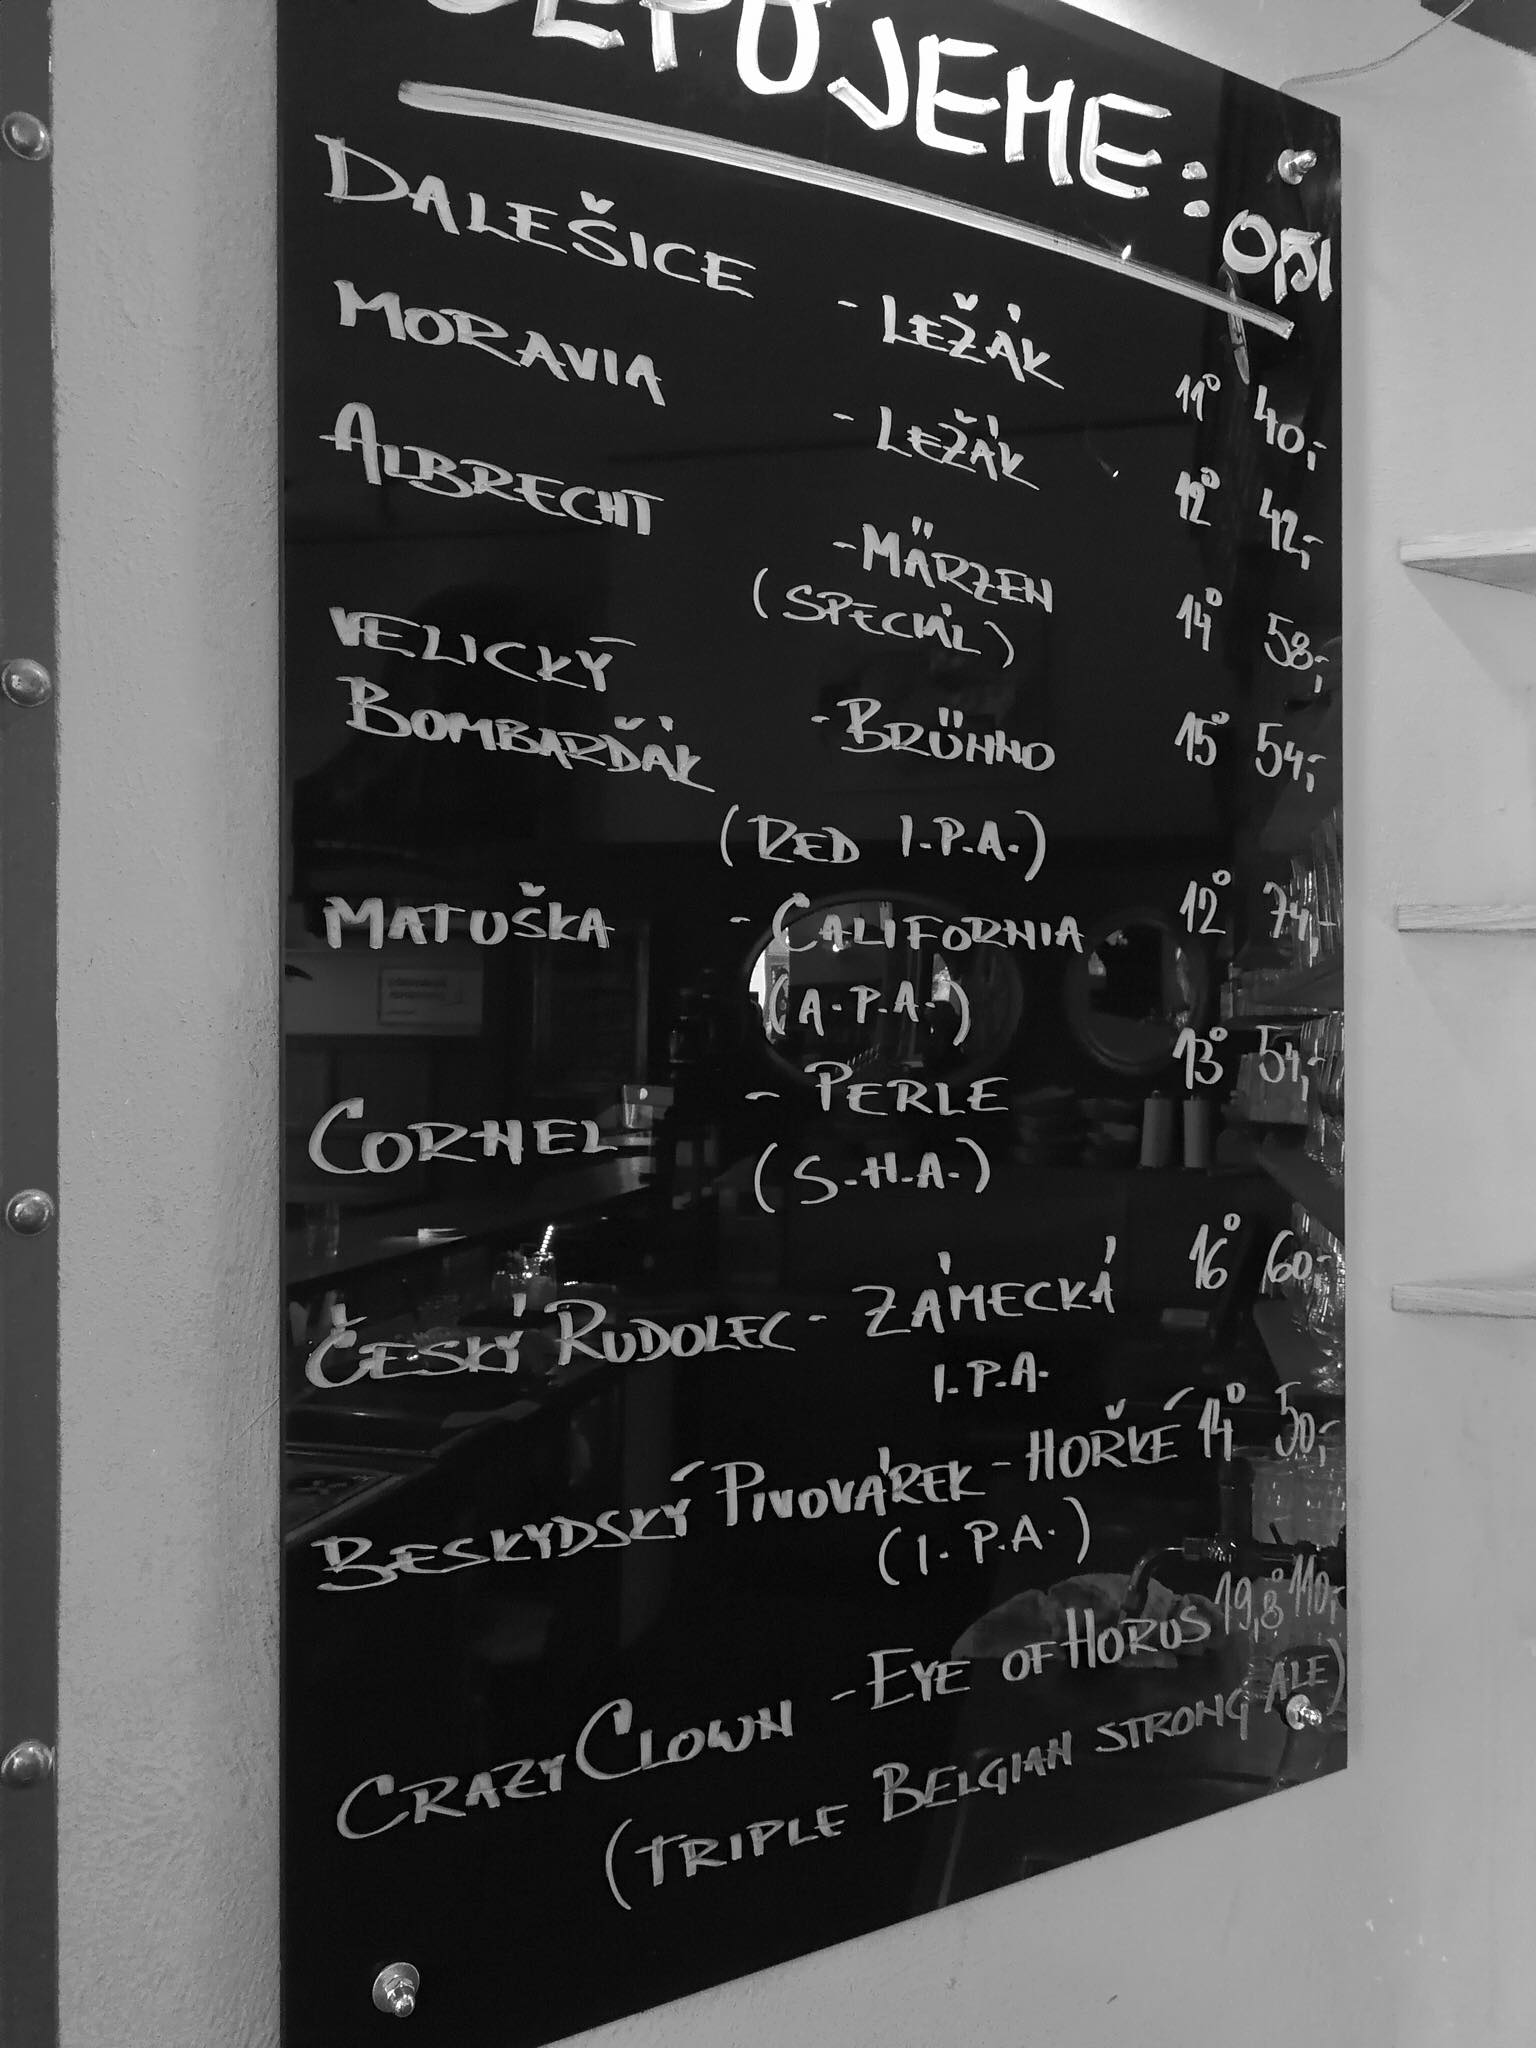 ČEPUJEME:
DALEŠICE - LEŽÁK 11° 40,-
MORAVIA - LEŽÁK 12° 42,-
ALBRECHT - MÄRZEN 14° 58,-
(SPECIÁL)
VELICKÝ
BOMBARĎÁK - BRÜNNO 15° 54,-
(RED I.P.A.)
MATUŠKA - CALIFORNIA 12° 74,-
(A.P.A.)
CORNEL - PERLE 13° 54,-
(S.H.A.)
ČESKÝ RUDOLEC - ZÁMECKÁ 16° 60,-
I.P.A.
BESKYDSKÝ PIVOVÁREK - HOŘKÉ 14° 50,-
(I.P.A.)
CRAZY CLOWN - EYE OF HORUS 19,8° 110,-
(TRIPLE BELGIAN STRONG ALE)